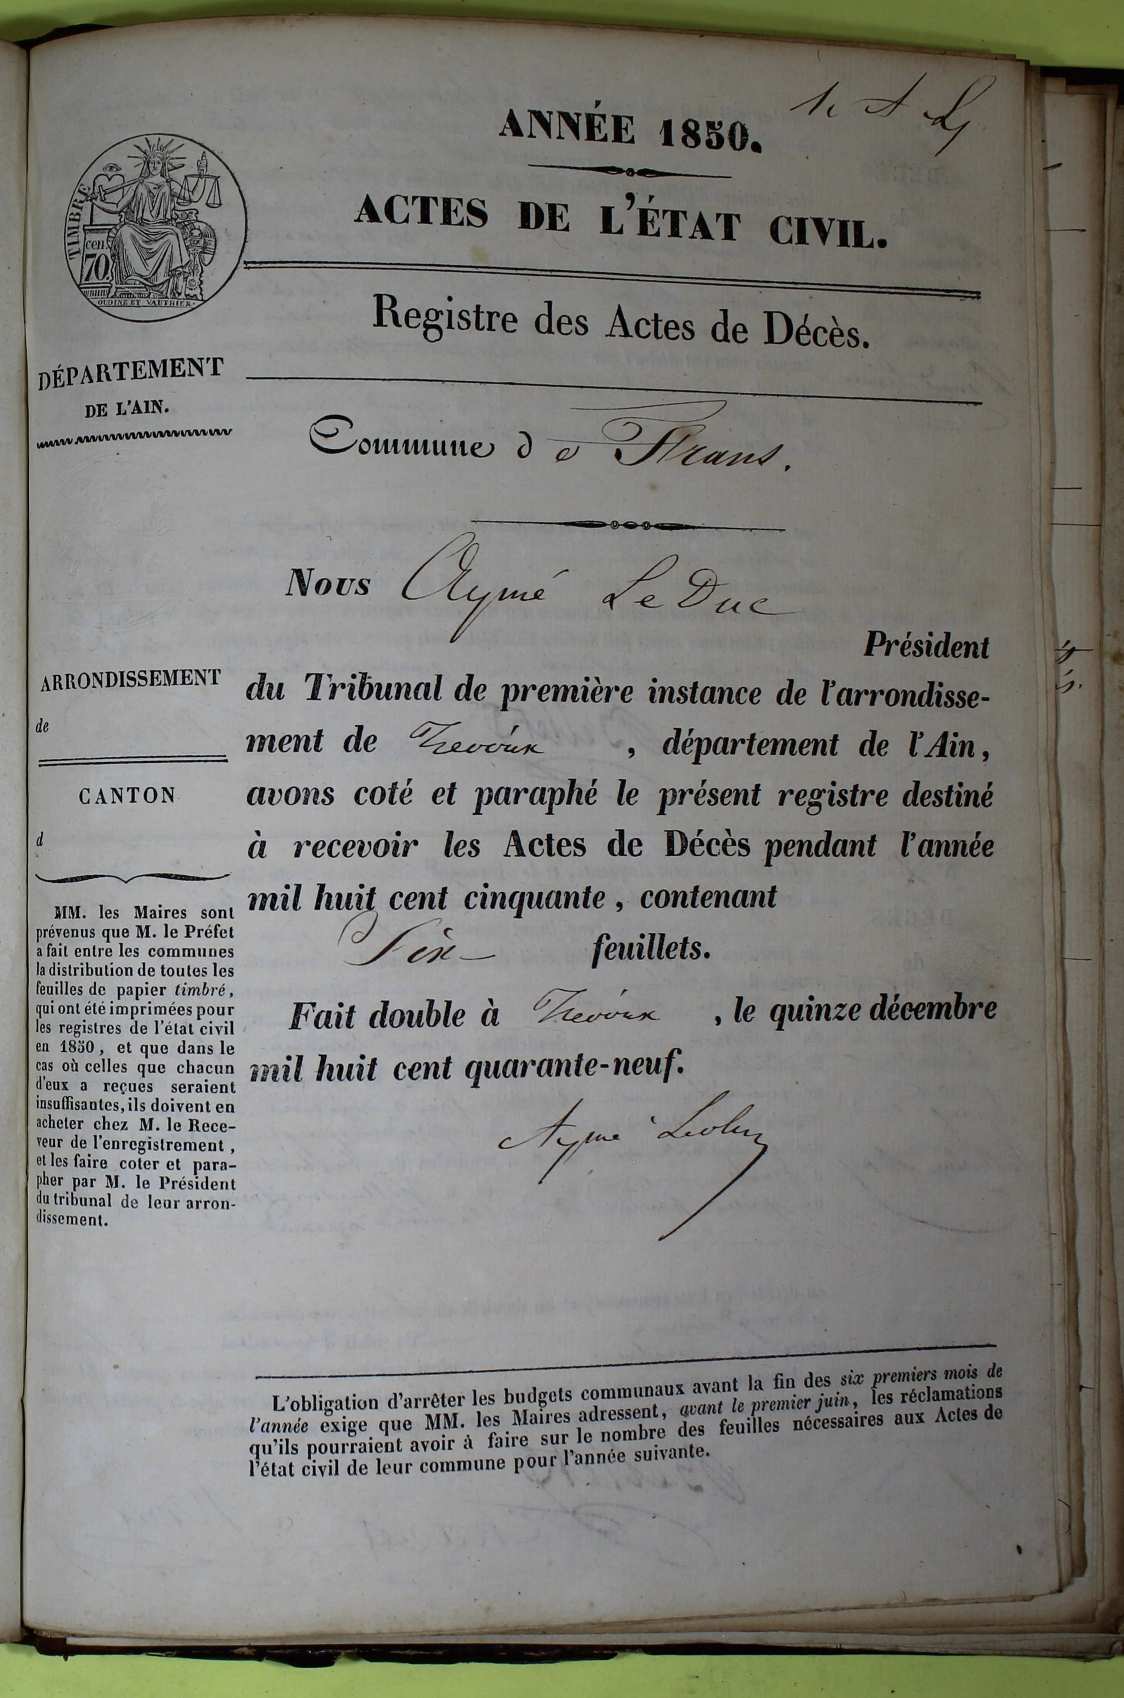 1e A L
ANNÉE 1850.
ACTES DE L'ÉTAT CIVIL.
TIMBRE
cen.
70
OUDINÉ ET VAUTHIER
Registre des Actes de Décès.
DÉPARTEMENT
DE L'AIN.
Commune de Frans.
Nous Aymé LeDuc
Président
du Tribunal de première instance de l'arrondisse-
ment de Trévoux , département de l'Ain,
avons coté et paraphé le présent registre destiné
à recevoir les Actes de Décès pendant l'année
mil huit cent cinquante, contenant
Six feuillets.
Fait double à Trévoux , le quinze décembre
mil huit cent quarante-neuf.
Aymé Leduc
ARRONDISSEMENT
de
CANTON
d
MM. les Maires sont
prévenus que M. le Préfet
a fait entre les communes
la distribution de toutes les
feuilles de papier timbré,
qui ont été imprimées pour
les registres de l'état civil
en 1850, et que dans le
cas où celles que chacun
d'eux a reçues seraient
insuffisantes, ils doivent en
acheter chez M. le Rece-
veur de l'enregistrement,
et les faire coter et para-
pher par M. le Président
du tribunal de leur arron-
dissement.
L'obligation d'arrêter les budgets communaux avant la fin des six premiers mois de
l'année exige que MM. les Maires adressent, avant le premier juin, les réclamations
qu'ils pourraient avoir à faire sur le nombre des feuilles nécessaires aux Actes de
l'état civil de leur commune pour l'année suivante.